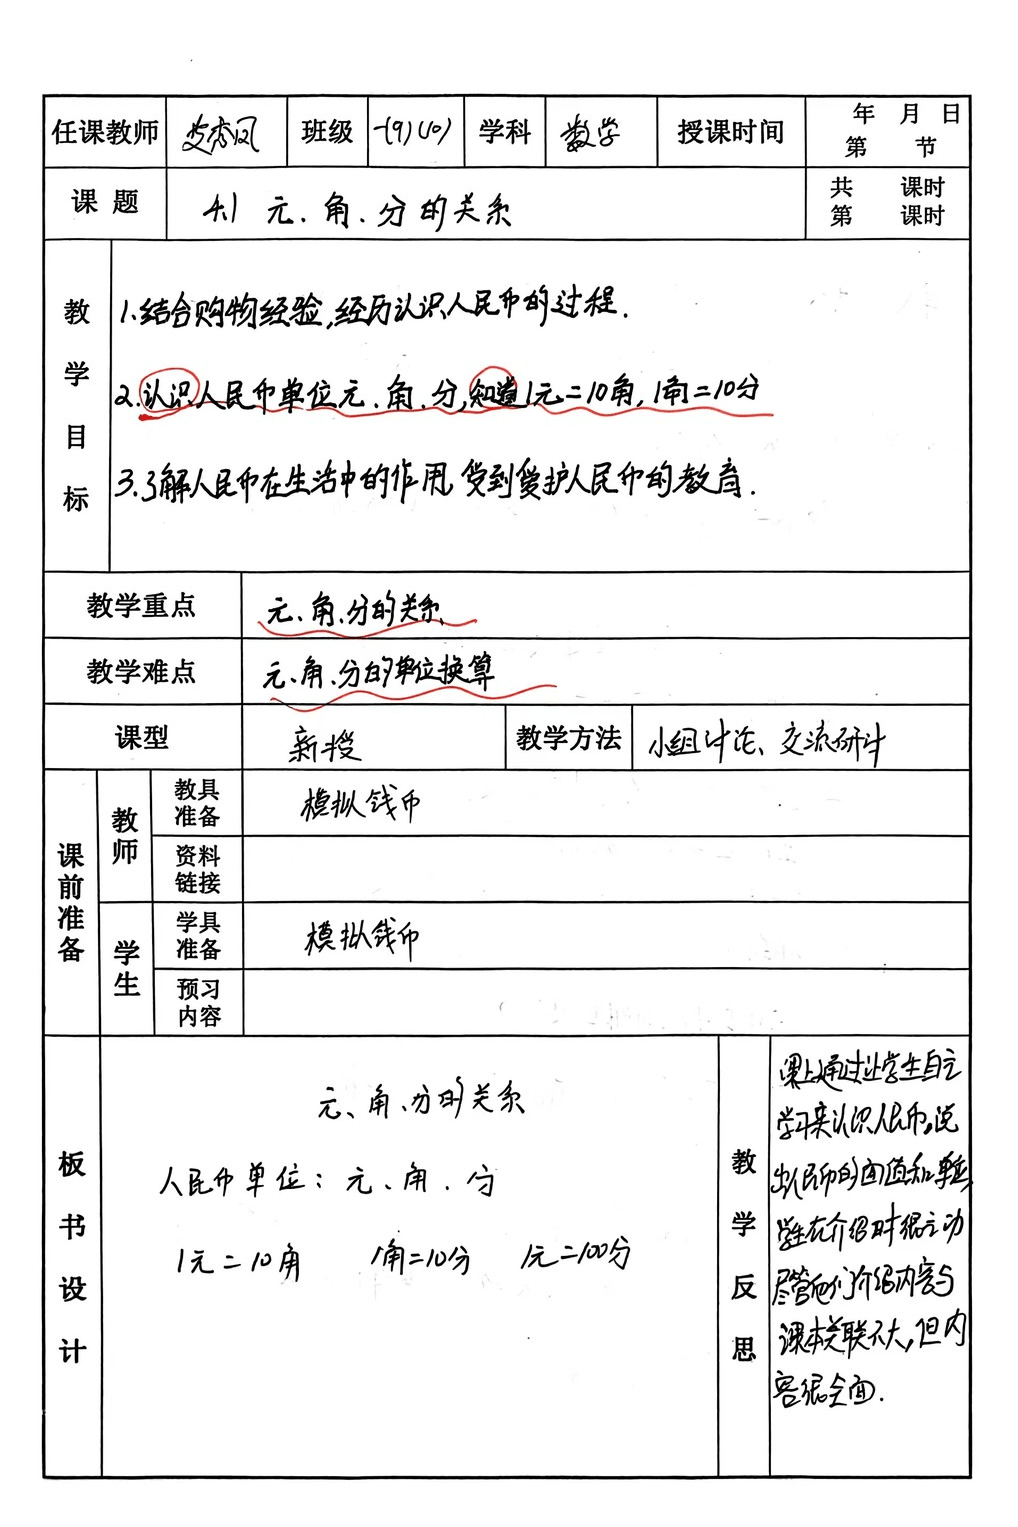 任课教师 班级 一(9)(10) 学科 数学 授课时间 年 月 日
第 节
课题 4.1 元、角、分的关系 共 课时
第 课时
教学目标
1.结合购物经验,经历认识人民币的过程.
2.认识人民币单位元、角、分,知道1元=10角,1角=10分
3.了解人民币在生活中的作用,受到爱护人民币的教育.
教学重点 元、角、分的关系
教学难点 元、角、分的单位换算
课型 新授 教学方法 小组讨论、交流研讨
课前准备
教师
教具准备 模拟钱币
资料链接
学生
学具准备 模拟钱币
预习内容
板书设计
元、角、分的关系
人民币单位:元、角、分
1元=10角 1角=10分 1元=100分
教学反思
课上通过让学生自主
学习来认识人民币,说
出人民币的面值和单位,
学生在介绍时很主动
尽管他们介绍内容与
课本关联不大,但内
容很全面.